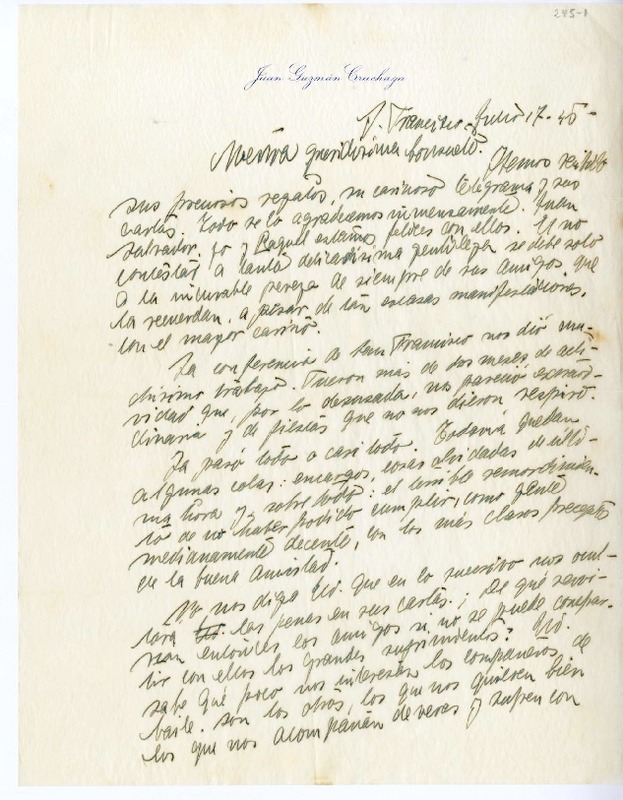 245-1
Juan Guzmán Cruchaga
S. Francisco, Julio 17-45-
queridísima Consuelo.
Hemos recibido
sus preciosos regalos, su cariñoso telegrama y sus
cartas. Todo se lo agradecemos inmensamente. Juan
Salvador, yo y Raquel estamos felices con ellos. El no
contestar a tanta delicadísima gentileza se debe solo
a la incurable pereza de siempre de sus amigos que
la recuerdan, a pesar de tan escasas manifestaciones,
con el mayor cariño.
La conferencia de San Francisco nos dió mu-
chísimo trabajo. Fueron mas de dos meses de acti-
vidad que, por lo desusada, nos pareció extraor-
dinaria y de fiestas que no nos dieron respiro.
Ya pasó todo o casi todo. Todavía quedan
algunas colas: encargos, cosas olvidadas de últi-
ma hora y, sobre todo: el terrible remordimien-
to de no haber podido cumplir, como gente
medianamente decente, con los más claros preceptos
de la buena amistad.
No nos diga Ud. que en lo sucesivo nos ocul-
tará las penas en sus cartas. ¿De qué servi-
rían entonces los amigos si no se puede compar-
tir con ellos los grandes sufrimientos? Ud.
sabe qué poco nos interesan los compañeros de
baile. Son los otros, los que nos quieren bien
los que nos acompañan de veras y sufren con